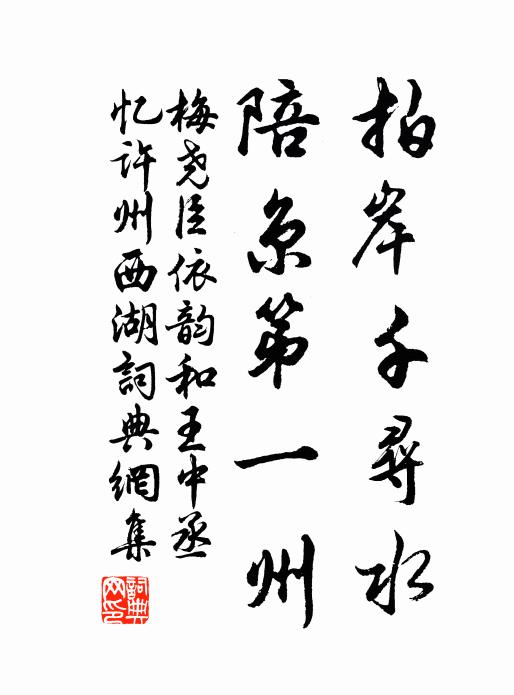 拍岸千尋水
陪京第一州
梅尧臣依韵和王中丞
忆许州西湖詞典網集
詞典
网印